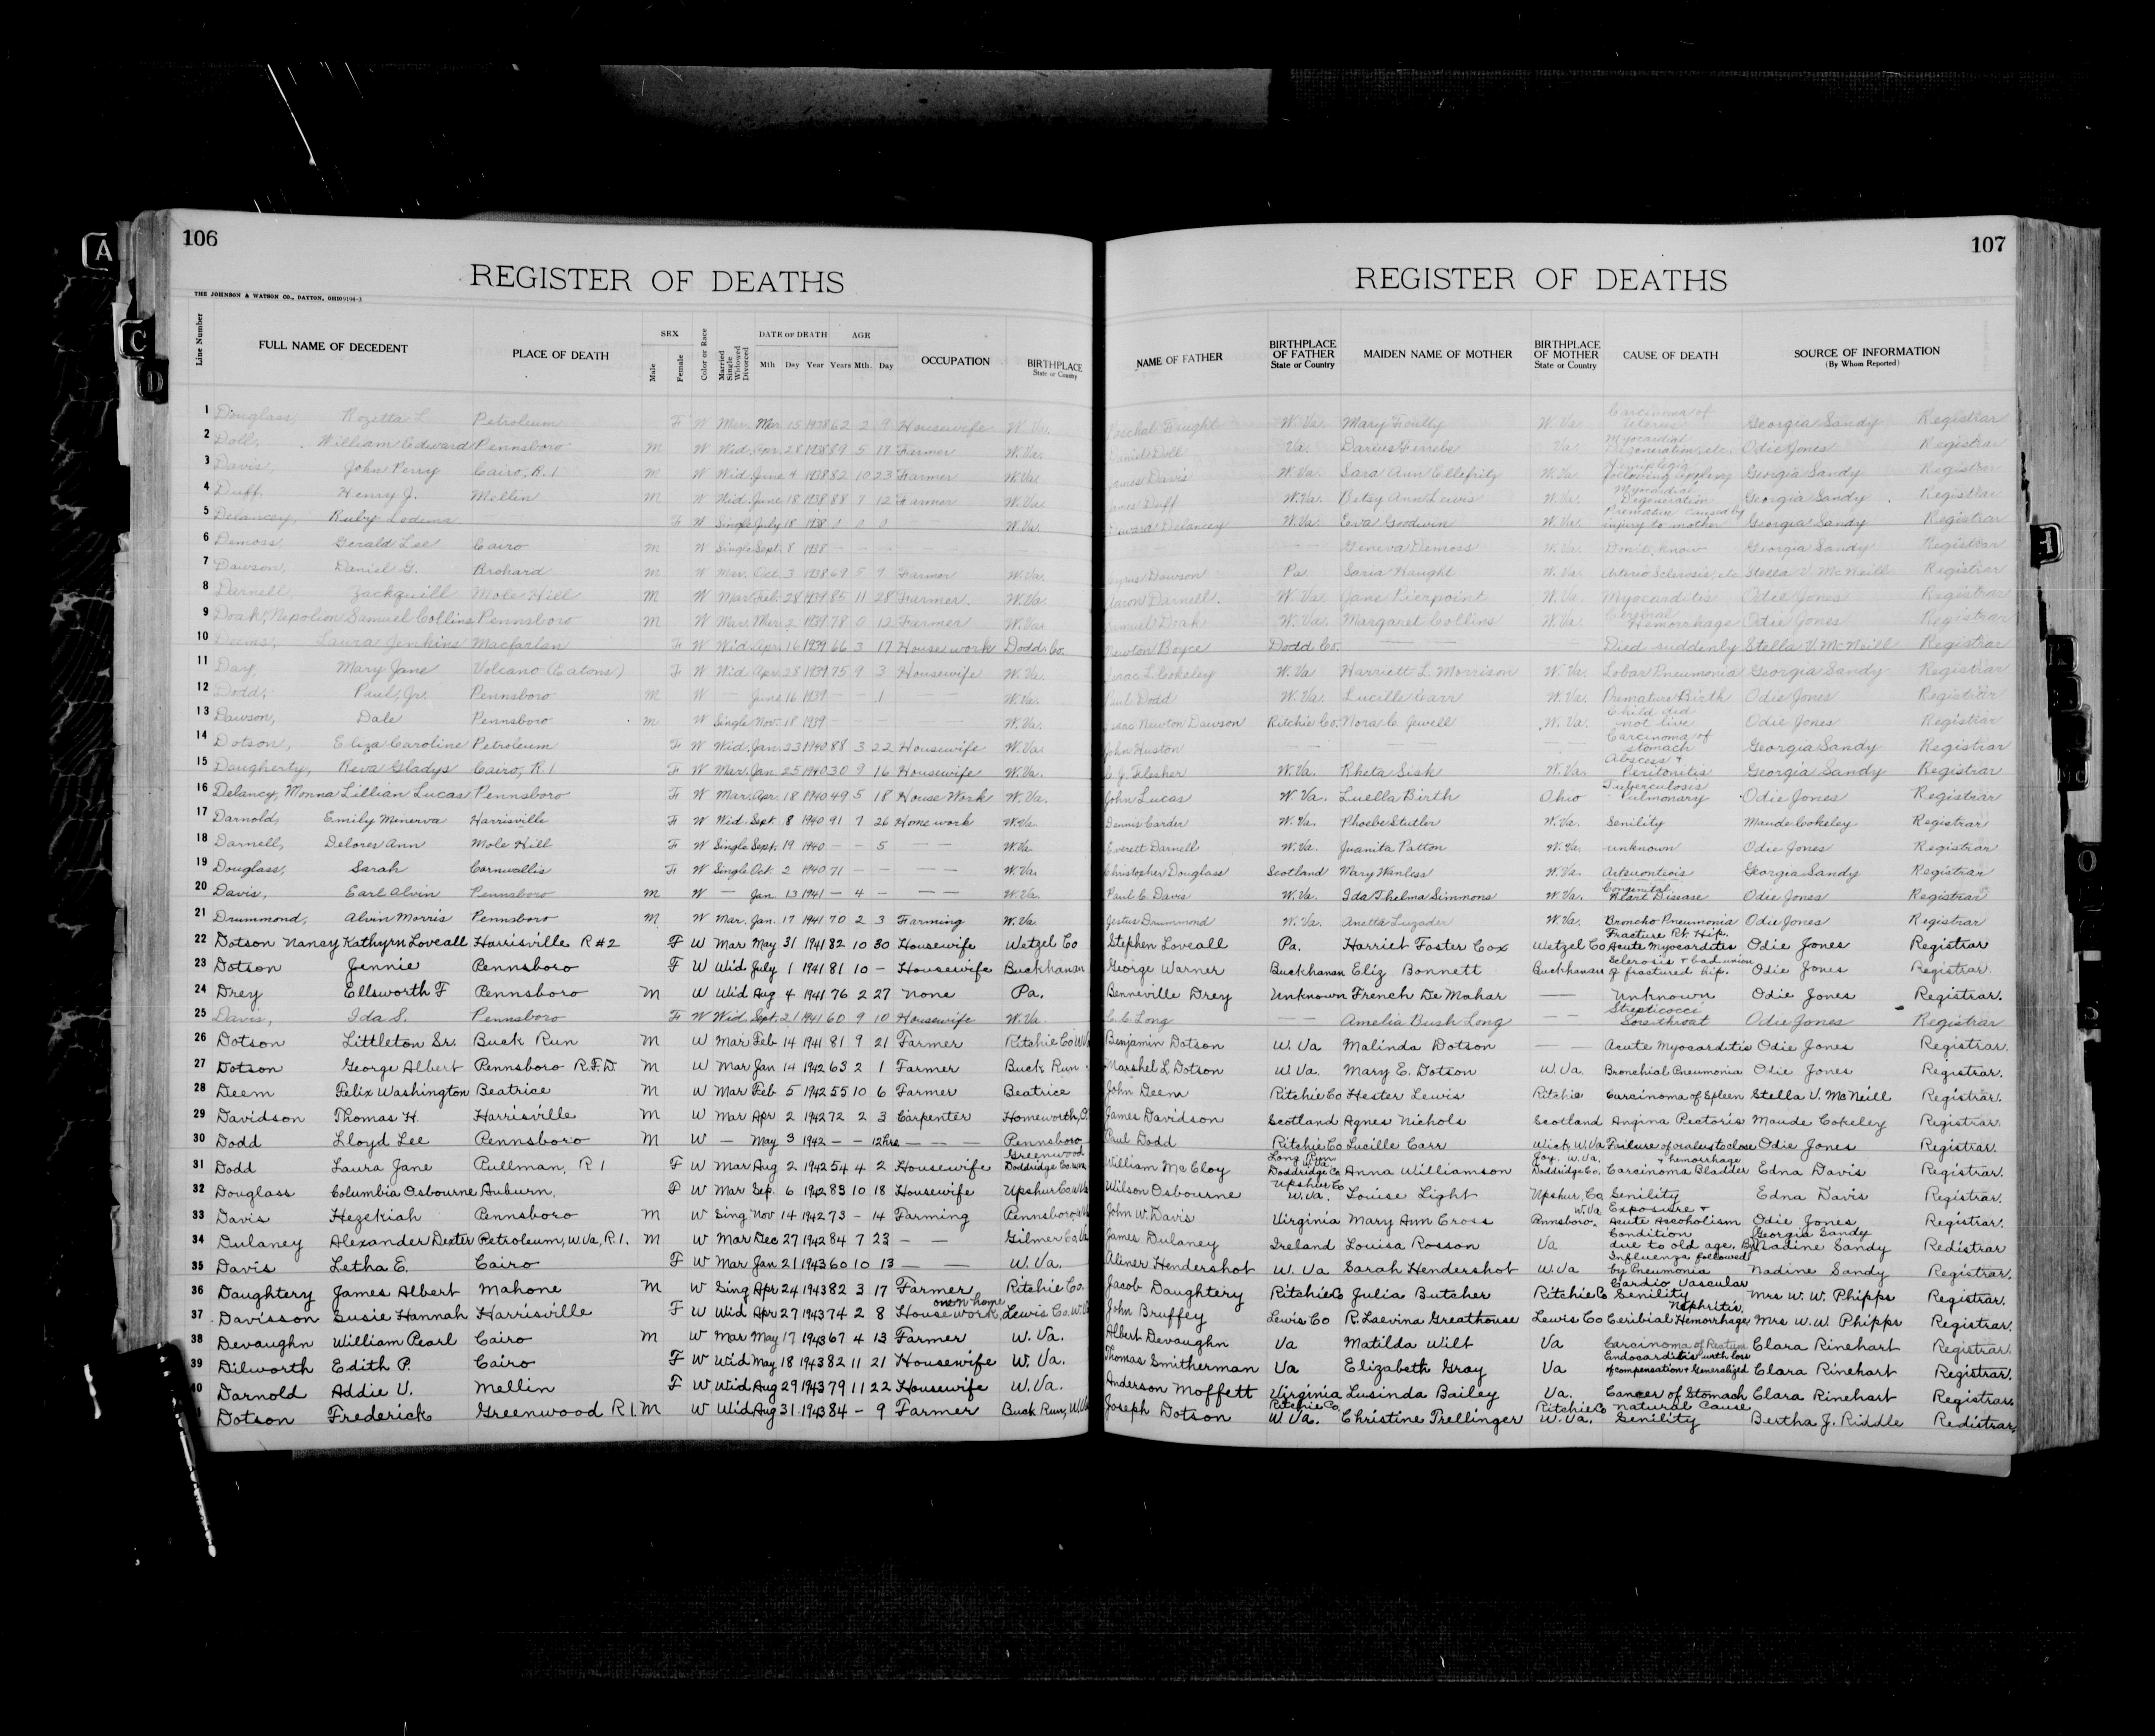 106
REGISTER OF DEATHS
THE JOHNSON & WATSON CO., DAYTON, OHIO
Line Number FULL NAME OF DECEDENT PLACE OF DEATH SEX Male Female Color or Race Married Single Widowed Divorced DATE OF DEATH Mth Day Year AGE Years Mth. Day OCCUPATION BIRTHPLACE State or Country
107
REGISTER OF DEATHS
NAME OF FATHER BIRTHPLACE OF FATHER State or Country MAIDEN NAME OF MOTHER BIRTHPLACE OF MOTHER State or Country CAUSE OF DEATH SOURCE OF INFORMATION (By Whom Reported)
1 Douglass, Rozetta L. Petroleum F W Mar. Mar 15 1938 62 2 9 Housewife W. Va. Paschal Fought W. Va. Mary Foutty W. Va. Carcinoma of Uterus Georgia Sandy Registrar
2 Doll, William Edward Pennsboro M W Wid. Apr. 28 1938 89 5 17 Farmer W. Va. Daniel Doll Va. Va. Myocardial Degeneration, etc. Odie Jones Registrar
3 Davis, John Perry Cairo, R.1 M W Wid. June 4 1938 82 10 23 Farmer W. Va. James Davis W. Va. Sara Ann Ellifrity W. Va. Hemiplegia following Georgia Sandy Registrar
4 Duff, Henry J. Mellin M W Wid. June 18 1938 88 7 12 Farmer W. Va. James Duff W. Va. Betsy Ann Lewis W. Va. Myocardial Degeneration Georgia Sandy Registrar
5 Delancey, Ruby F W Single July 18 1938 0 0 0 W. Va. Edward Delancey W. Va. Eva Goodwin W. Va. Premature caused by injury to mother Georgia Sandy Registrar
6 Demoss, Gerald Lee Cairo M W Single Sept. 8 1938 — — — — — Geneva Demoss W. Va. Don't know Georgia Sandy Registrar
7 Dawson, Daniel G. Brohard M W Mar. Oct. 3 1938 69 5 9 Farmer W. Va. Dawson Pa. Saria Haught W. Va. Arterio Sclerosis, etc Stella V. McNeill Registrar
8 Darnell, Zackquill Mole Hill M W Mar Feb. 28 1939 85 11 28 Farmer. W. Va. Aaron Darnell. W. Va. Jane Pierpoint W. Va. Myocarditis Odie Jones Registrar
9 Doak, Nepolion Samuel Collins Pennsboro M W Mar. Mar. 2 1939 78 0 12 Farmer W. Va. Samuel Doak W. Va. Margaret Collins W. Va. Cerebral Hemorrhage Odie Jones Registrar
10 Deems, Laura Jenkins Macfarlan F W Wid. Apr. 16 1939 66 3 17 House work Dodd. Co. Newton Boyce Dodd Co. — — Died suddenly Stella V. McNeill Registrar
11 Day, Mary Jane Volcano (Eatons) F W Wid Apr. 28 1939 75 9 3 Housewife W. Va. Isaac L. Cokeley W. Va Harriett L. Morrison W. Va. Lobar Pneumonia Georgia Sandy Registrar
12 Dodd, Paul, Jr. Pennsboro M W — June 16 1939 — — 1 W. Va. Paul Dodd W. Va. Lucille Carr W. Va. Premature Birth Odie Jones Registrar
13 Dawson, Dale Pennsboro M W Single Nov. 18 1939 — — — W. Va. Newton Dawson Ritchie Co. Nora C. Jewell W. Va. Child did not live Odie Jones Registrar
14 Dotson, Eliza Caroline Petroleum F W Wid. Jan. 23 1940 88 3 22 Housewife W. Va. John Huston — — — Carcinoma of stomach Georgia Sandy Registrar
15 Daugherty, Reva Gladys Cairo, R.1 F W Mar. Jan. 25 1940 30 9 16 Housewife W. Va. C. J. Flesher W. Va. Rheta Sisk W. Va. Abscess & Peritonitis Georgia Sandy Registrar
16 Delancy, Monna Lillian Lucas Pennsboro F W Mar. Apr. 18 1940 49 5 18 House Work W. Va. John Lucas W. Va. Luella Birth Ohio Tuberculosis Pulmonary Odie Jones Registrar
17 Darnold, Emily Minerva Harrisville F W Wid. Sept. 8 1940 91 7 26 Home work W. Va Dennis Carder W. Va. Phoebe Stutler W. Va. Senility Maude Cokeley Registrar
18 Darnell, Delores Ann Mole Hill F W Single Sept. 19 1940 — — 5 — — W. Va. Everett Darnell W. Va. Juanita Patton W. Va. unknown Odie Jones Registrar
19 Douglass, Sarah Cornwallis F W Single Oct. 2 1940 71 — — — — W. Va. Christopher Douglass Scotland Mary Wanless W. Va. Georgia Sandy Registrar
20 Davis, Earl Alvin Pennsboro M W — Jan 13 1941 — 4 — — — W. Va. Paul C. Davis W. Va. Ida Thelma Simmons W. Va. Congenital Heart Disease Odie Jones Registrar
21 Drummond, Alvin Morris Pennsboro M W Mar. Jan. 17 1941 70 2 3 Farming W. Va Jestus Drummond W. Va. Anetta Lugader W. Va. Broncho Pneumonia Odie Jones Registrar
22 Dotson Nancy Kathyrn Loveall Harrisville R #2 F W Mar May 31 1941 82 10 30 Housewife Wetzel Co Stephen Loveall Pa. Harriet Foster Cox Wetzel Co Fracture Rt. Hip. Acute Myocardites Odie Jones Registrar
23 Dotson Jennie Pennsboro F W Wid July 1 1941 81 10 — Housewife Buckhanan George Warner Buckhanan Eliz Bonnett Buckhanan Sclerosis & bad union of fractured hip. Odie Jones Registrar.
24 Drey Ellsworth F Pennsboro M W Wid Aug 4 1941 76 2 27 None Pa. Benneville Drey Unknown French De Mahar — Unknown Odie Jones Registrar.
25 Davis, Ida S. Pennsboro F W Wid. Sept. 21 1941 60 9 10 Housewife W. Va C. C. Long — — Amelia Bush Long — — Strepticocci Sore throat Odie Jones Registrar
26 Dotson Littleton Sr. Buck Run M W Mar Feb 14 1941 81 9 21 Farmer Ritchie Co W Va Benjamin Dotson W. Va Malinda Dotson — — Acute Myocarditis Odie Jones Registrar.
27 Dotson George Albert Pennsboro R.F.D. M W Mar Jan 14 1942 63 2 1 Farmer Buck Run Marshel L Dotson W Va. Mary E. Dotson W. Va. Bronchial Pneumonia Odie Jones Registrar.
28 Deem Felix Washington Beatrice M W Mar Feb 5 1942 55 10 6 Farmer Beatrice John Deem Ritchie Co Hester Lewis Ritchie Carcinoma of Spleen Stella V. McNeill Registrar.
29 Davidson Thomas H. Harrisville M W Mar Apr 2 1942 72 2 3 Carpenter Homeworth, O. James Davidson Scotland Agnes Nichols Scotland Angina Pectoris Maude Cokeley Registrar.
30 Dodd Lloyd Lee Pennsboro M W — May 3 1942 — — 12hrs — — — Pennsboro Paul Dodd Ritchie Co Lucille Carr Wick W. Va Failure of ovales to close Odie Jones Registrar.
31 Dodd Laura Jane Pullman, R 1 F W Mar Aug 2 1942 54 4 2 Housewife Greenwood Doddridge Co. W.Va William McCloy Long Run W. Va. Doddridge Co Anna Williamson Joy, W. Va. Doddridge Co. & hemorrhage Carcinoma Bladder Edna Davis Registrar.
32 Douglass Columbia Osbourne Auburn, F W Mar Sep. 6 1942 83 10 18 Housewife Upshur Co W Va Wilson Osbourne Upshur Co W. Va. Louise Light Upshur, Co W. Va Senility Edna Davis Registrar.
33 Davis Hezekiah Pennsboro M W Sing Nov 14 1942 73 — 14 Farming Pennsboro, W. Va John W. Davis Virginia Mary Ann Cross Pennsboro. Exposure & Acute Ascoholism Odie Jones Registrar.
34 Dulaney Alexander Dexter Petroleum, W. Va, R 1. M W Mar Dec 27 1942 84 7 23 — — Gilmer Co, Va James Dulaney Ireland Louisa Rosson Va Condition due to old age. Georgia Sandy By Nadine Sandy Redistrar
35 Davis Letha E. Cairo F W Mar Jan 21 1943 60 10 13 — — W. Va. Abner Hendershot W. Va Sarah Hendershot W. Va Influenza followed by Pneumonia Nadine Sandy Registrar.
36 Daughtery James Albert Mahone M W Sing Apr 24 1943 82 3 17 Farmer Ritchie Co. Jacob Daughtery Ritchie Co Julia Butcher Ritchie Co Cardio Vascular Senility Mrs W. W. Phipps Registrar.
37 Davisson Susie Hannah Harrisville F W Wid Apr 27 1943 74 2 8 House work, own home Lewis Co. W. Va John Bruffey Lewis Co R. Laevina Greathouse Lewis Co Nephritis. Ceribial Hemorrhage Mrs W. W. Phipps Registrar.
38 Devaughn William Pearl Cairo M W Mar May 17 1943 67 4 13 Farmer W. Va. Albert Devaughn Va Matilda Wilt Va Carcinoma of Rectum Clara Rinehart Registrar.
39 Dilworth Edith P. Cairo F W Wid May 18 1943 82 11 21 Housewife W. Va. Thomas Smitherman Va Elizabeth Gray Va Endocarditis with loss of compensation & Generalized Clara Rinehart Registrar.
40 Darnold Addie V. Mellin F W Wid Aug 29 1943 79 11 22 Housewife W. Va. Anderson Moffett Virginia Lusinda Bailey Va. Cancer of Stomach Clara Rinehart Registrar.
Dotson Frederick Greenwood R 1. M W Wid Aug 31 1943 84 — 9 Farmer Buck Run, W. Va Joseph Dotson Ritchie Co. W. Va. Christine Trellinger Ritchie Co W. Va. natural cause Senility Bertha J. Riddle Redistrar.
A
C
D